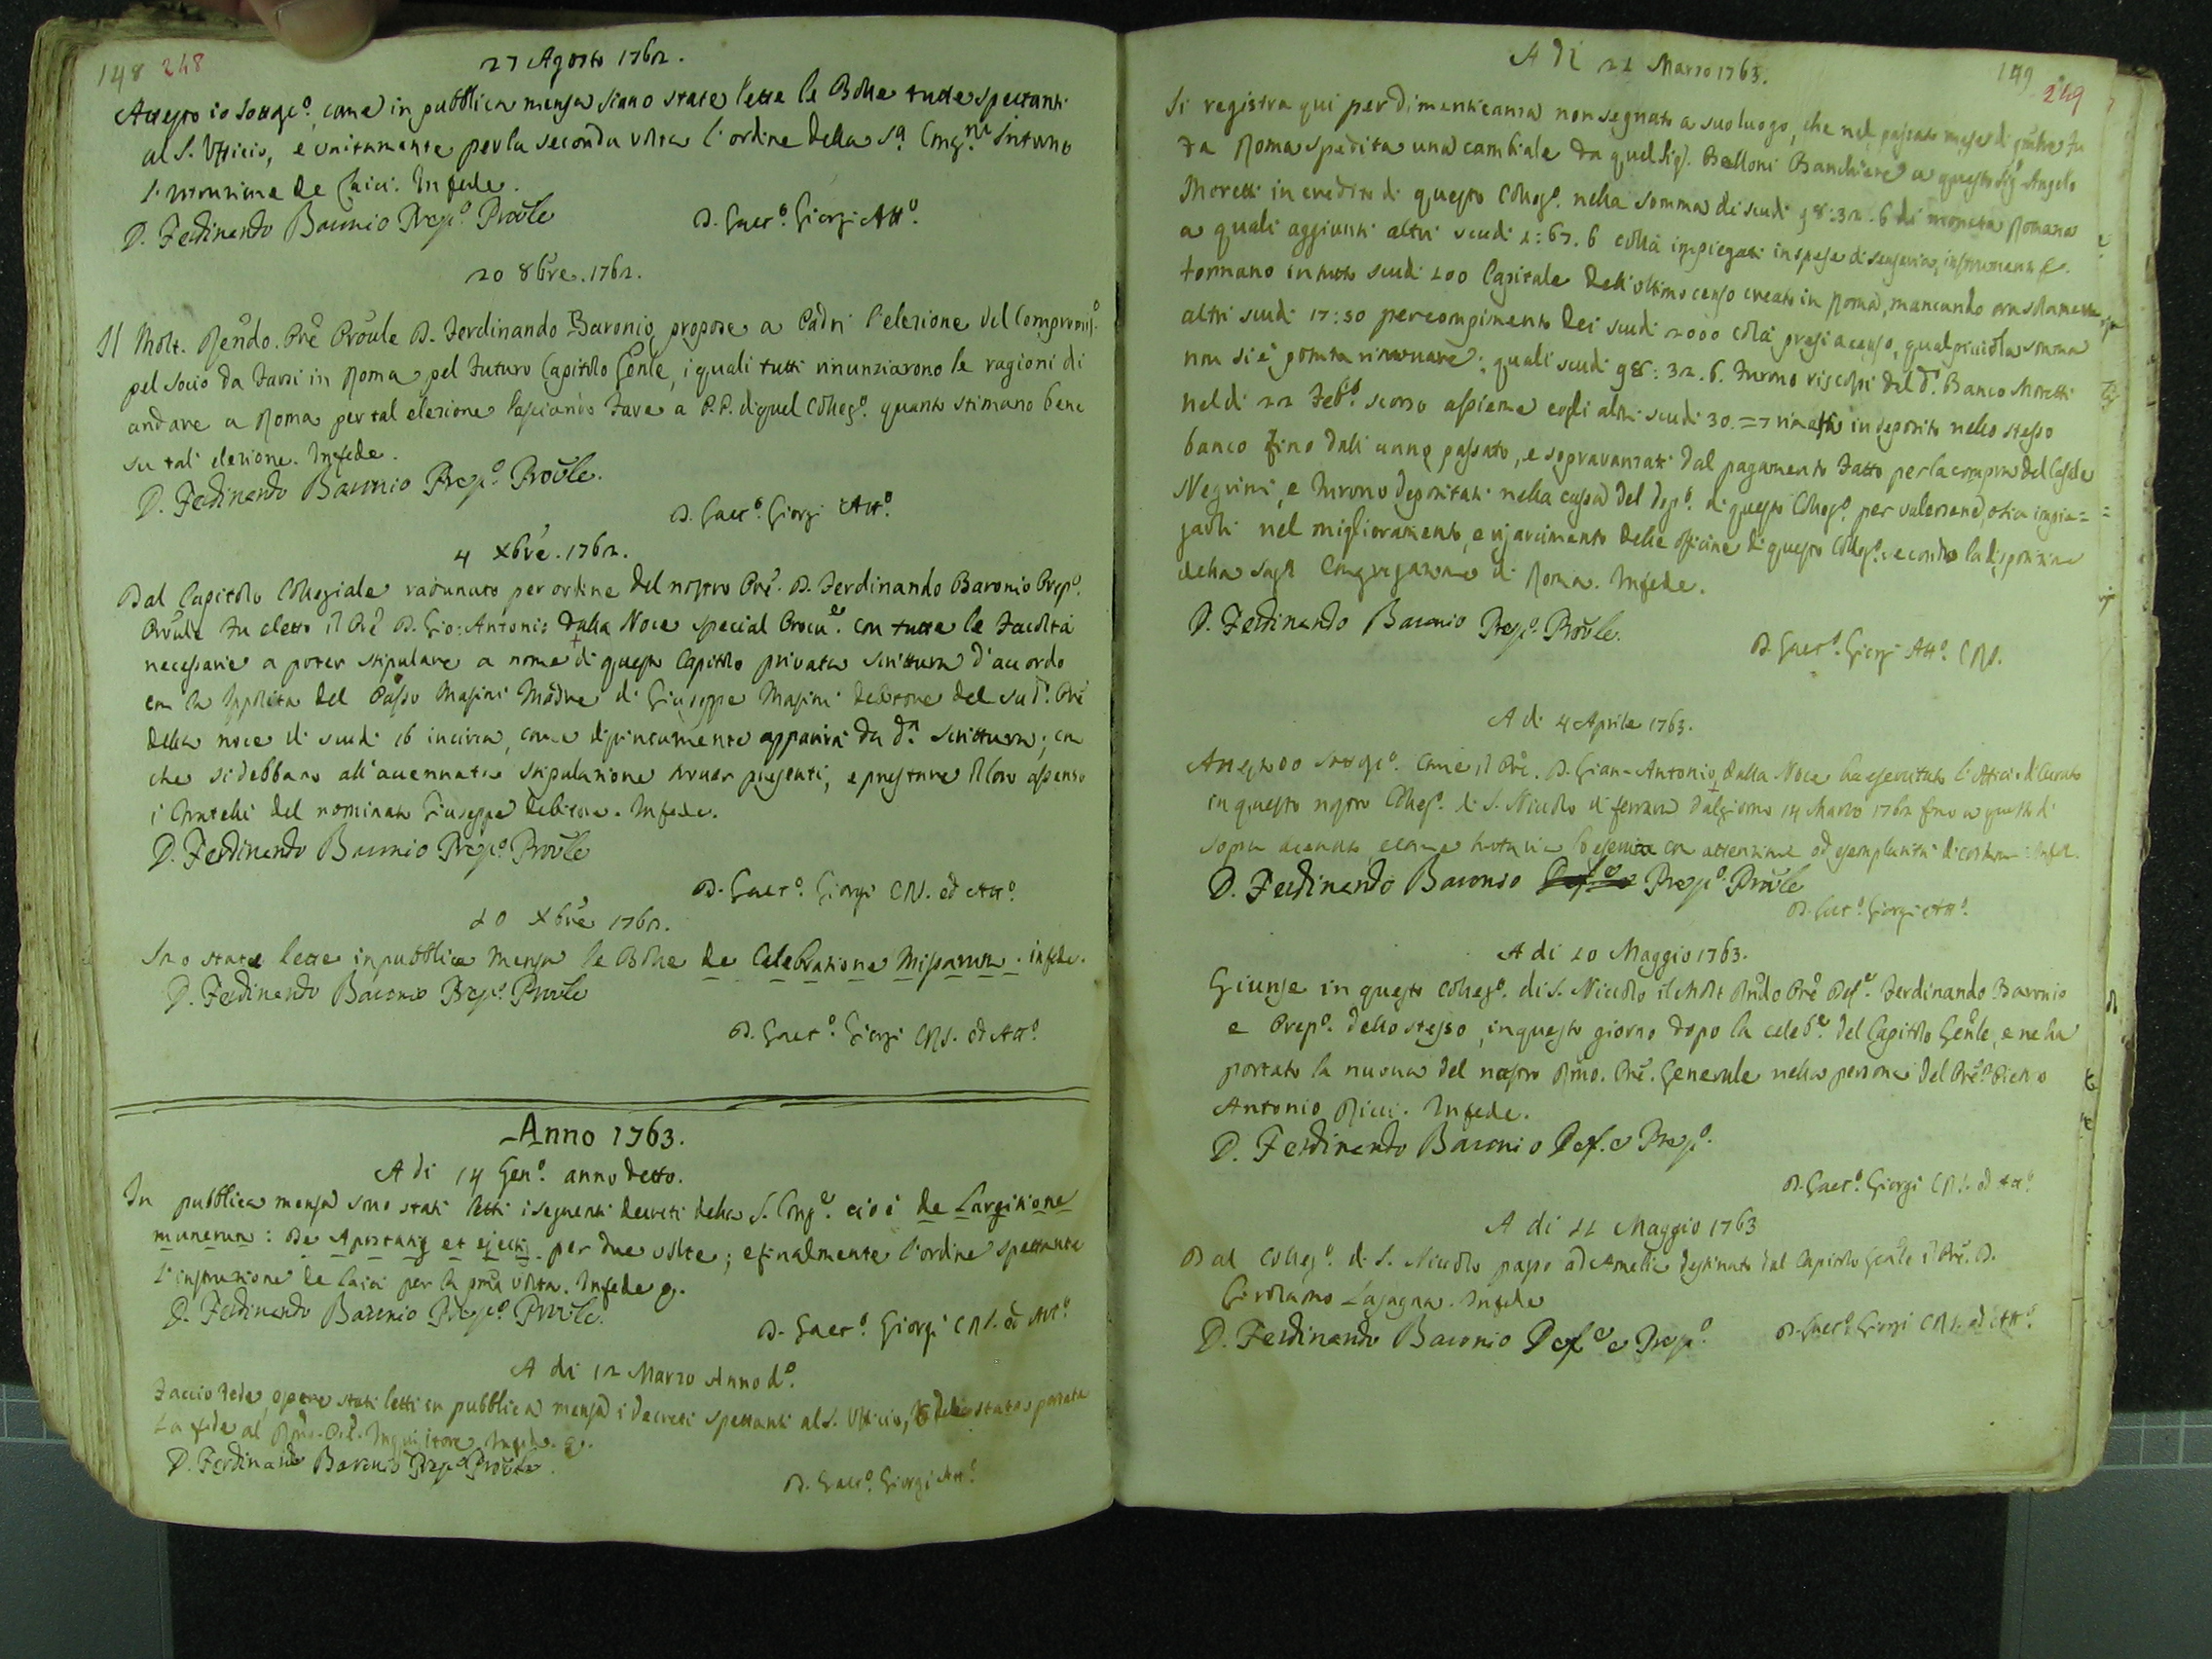 148 248
27 Agosto 1762.
Attesto io sottosc.º, come in pubblica mensa siano state lette le Bolle tutte spettanti
al S. Ufficio, e unitamente per la seconda volta l'ordine della S.ª Cong.ne intorno
l' de Laici. In fede.
D. Ferdinando Baronio Prep.º Prov̄le
D. Gaet.º Giorgi Att.º
20 8bre. 1762.
Il Molt. Rendo. Pr̄e Prov̄le D. Ferdinando Baronio propose a Padri l'elezione del Compromis.º
pel socio da farsi in Roma pel futuro Capitolo Gen̄le, i quali tutti rinunziarono le ragioni di
andare a Roma per tal elezione lasciando fare a P.P. di quel Colleg.º quanto stimano bene
su tal' elezione. In fede.
D. Ferdinando Baronio Prep.º Prov̄le.
D. Gaet.º Giorgi Att.º
4 Xbre. 1762.
Dal Capitolo Collegiale radunato per ordine del nostro Pr̄e. D. Ferdinando Baronio Prep.º
Prov̄le fu eletto il Pr̄e D. Gio: Antonio dalla Noce special Procu.e con tutte le facoltà
necessarie a poter stipulare a nome di questo Capitolo privata scrittura d'accordo
con la Ippolita del Passo Masini Madre di Giuseppe Masini debitore del sud.º Pr̄e
della noce di scudi 16 incirca, come distintamente apparirà da d.ª scrittura; con
che si debbano all'accennata stipulazione trovar presenti, e prestare il loro assenso
i fratelli del nominato Giuseppe debitore. In fede.
D. Ferdinando Baronio Prep.º Prov̄le
D. Gaet.º Giorgi CRS. ed Att.º
20 Xbre 1762.
Sono state lette in pubblica mensa le Bolle de Celebratione Missarum. in fede.
D. Ferdinando Baronio Prep.º Prov̄le
D. Gaet.º Giorgi CRS. ed Att.º
Anno 1763.
A di 14 Gen.º anno detto.
In pubblica mensa sono stati letti i seguenti decreti della S. Cong.e cioè de Largitione
munerum: de Apostatis et ejectis per due volte; e finalmente l'ordine spettante
l'instruzione de Laici per la pm̄a volta. In fede
D. Ferdinando Baronio Prep.º Prov̄le.
D. Gaet.º Giorgi CRS. ed Att.º
A di 12 Marzo Anno d.º
Faccio fede essere stati letti in pubblica mensa i decreti spettanti al S. Ufficio, stata portata
la fede al Rm̄o. Pr̄e. Inquisitore. In fede.
D. Ferdinando Baronio Prep.º Prov̄le.
D. Gaet.º Giorgi Att.º
149 249
A di 22 Marzo 1763.
Si registra qui per dimenticanza non segnato a suo luogo, che nel passato mese di fu
da Roma spedita una cambiale da quel Sig.r Belloni Banchiere a questo Sig.r Angelo
Moretti in credito di questo Colleg.º nella somma di scudi 98:32.6 di moneta Romana
a quali aggiunti altri scudi 1:67.6 collà impiegati in spese di senseria, instrumenti
formano in tutto scudi 100 Capitale dell'ultimo censo creato in Roma, mancando ora solamente
altri scudi 17:50 per compimento dei scudi 2000 colà presi a censo, qual piccola somma
non si è potuta rinvenire: quali scudi 98:32.6. furono riscossi dal d.º Banco Moretti
nel di 22 Feb.º scorso assieme cogli altri scudi 30.=7 rimasti in deposito nello stesso
banco fino dall'anno passato, e sopravanzati dal pagamento fatto per la compra del Casale
Negrini, e furono depositati nella cassa del dep.º di questo Colleg.º per valersene, o sia impie=
garli nel miglioramento, e risarcimento delle officine di questo Colleg.º secondo la disposizione
della Sag.ª Congregazione di Roma. In fede.
D. Ferdinando Baronio Prep.º Prov̄le.
D. Gaet.º Giorgi Att.º CRS.
A di 4 Aprile 1763.
Attesto io sottosc.º come il Pr̄e. D. Gian-Antonio dalla Noce ha esercitato l'officio di Curato
in questo nostro Colleg.º di S. Niccolo di ferrara dal giorno 14 Marzo 1762 fino a questo di
sopra accennato, e come tuttavia lo esercita con attenzione ed esemplarità di costumi. In fed.
D. Ferdinando Baronio Prep.º Prov̄le
D. Gaet.º Giorgi Att.º
A di 20 Maggio 1763.
Giunse in questo Colleg.º di S. Niccolo il Molt Rn̄do Pr̄e Def.e Ferdinando Baronio
e Prep.º dello stesso, in questo giorno dopo la celeb.e del Capitolo Gen̄le, e ne ha
portato la nuova del nostro Rm̄o. Pr̄e. Generale nella persona del Pr̄e D. Pietro
Antonio Ricci. In fede.
D. Ferdinando Baronio Def. e Prep.º
D. Gaet.º Giorgi CRS. ed Att.º
A di 22 Maggio 1763
Dal Colleg.º di S. Niccolo passò ad Amelia destinato dal Capitolo Gen̄le il Pr̄e. D.
Girolamo Lasagna. In fede
D. Ferdinando Baronio Def.e e Prep.º
D. Gaet.º Giorgi CRS. ed Att.º